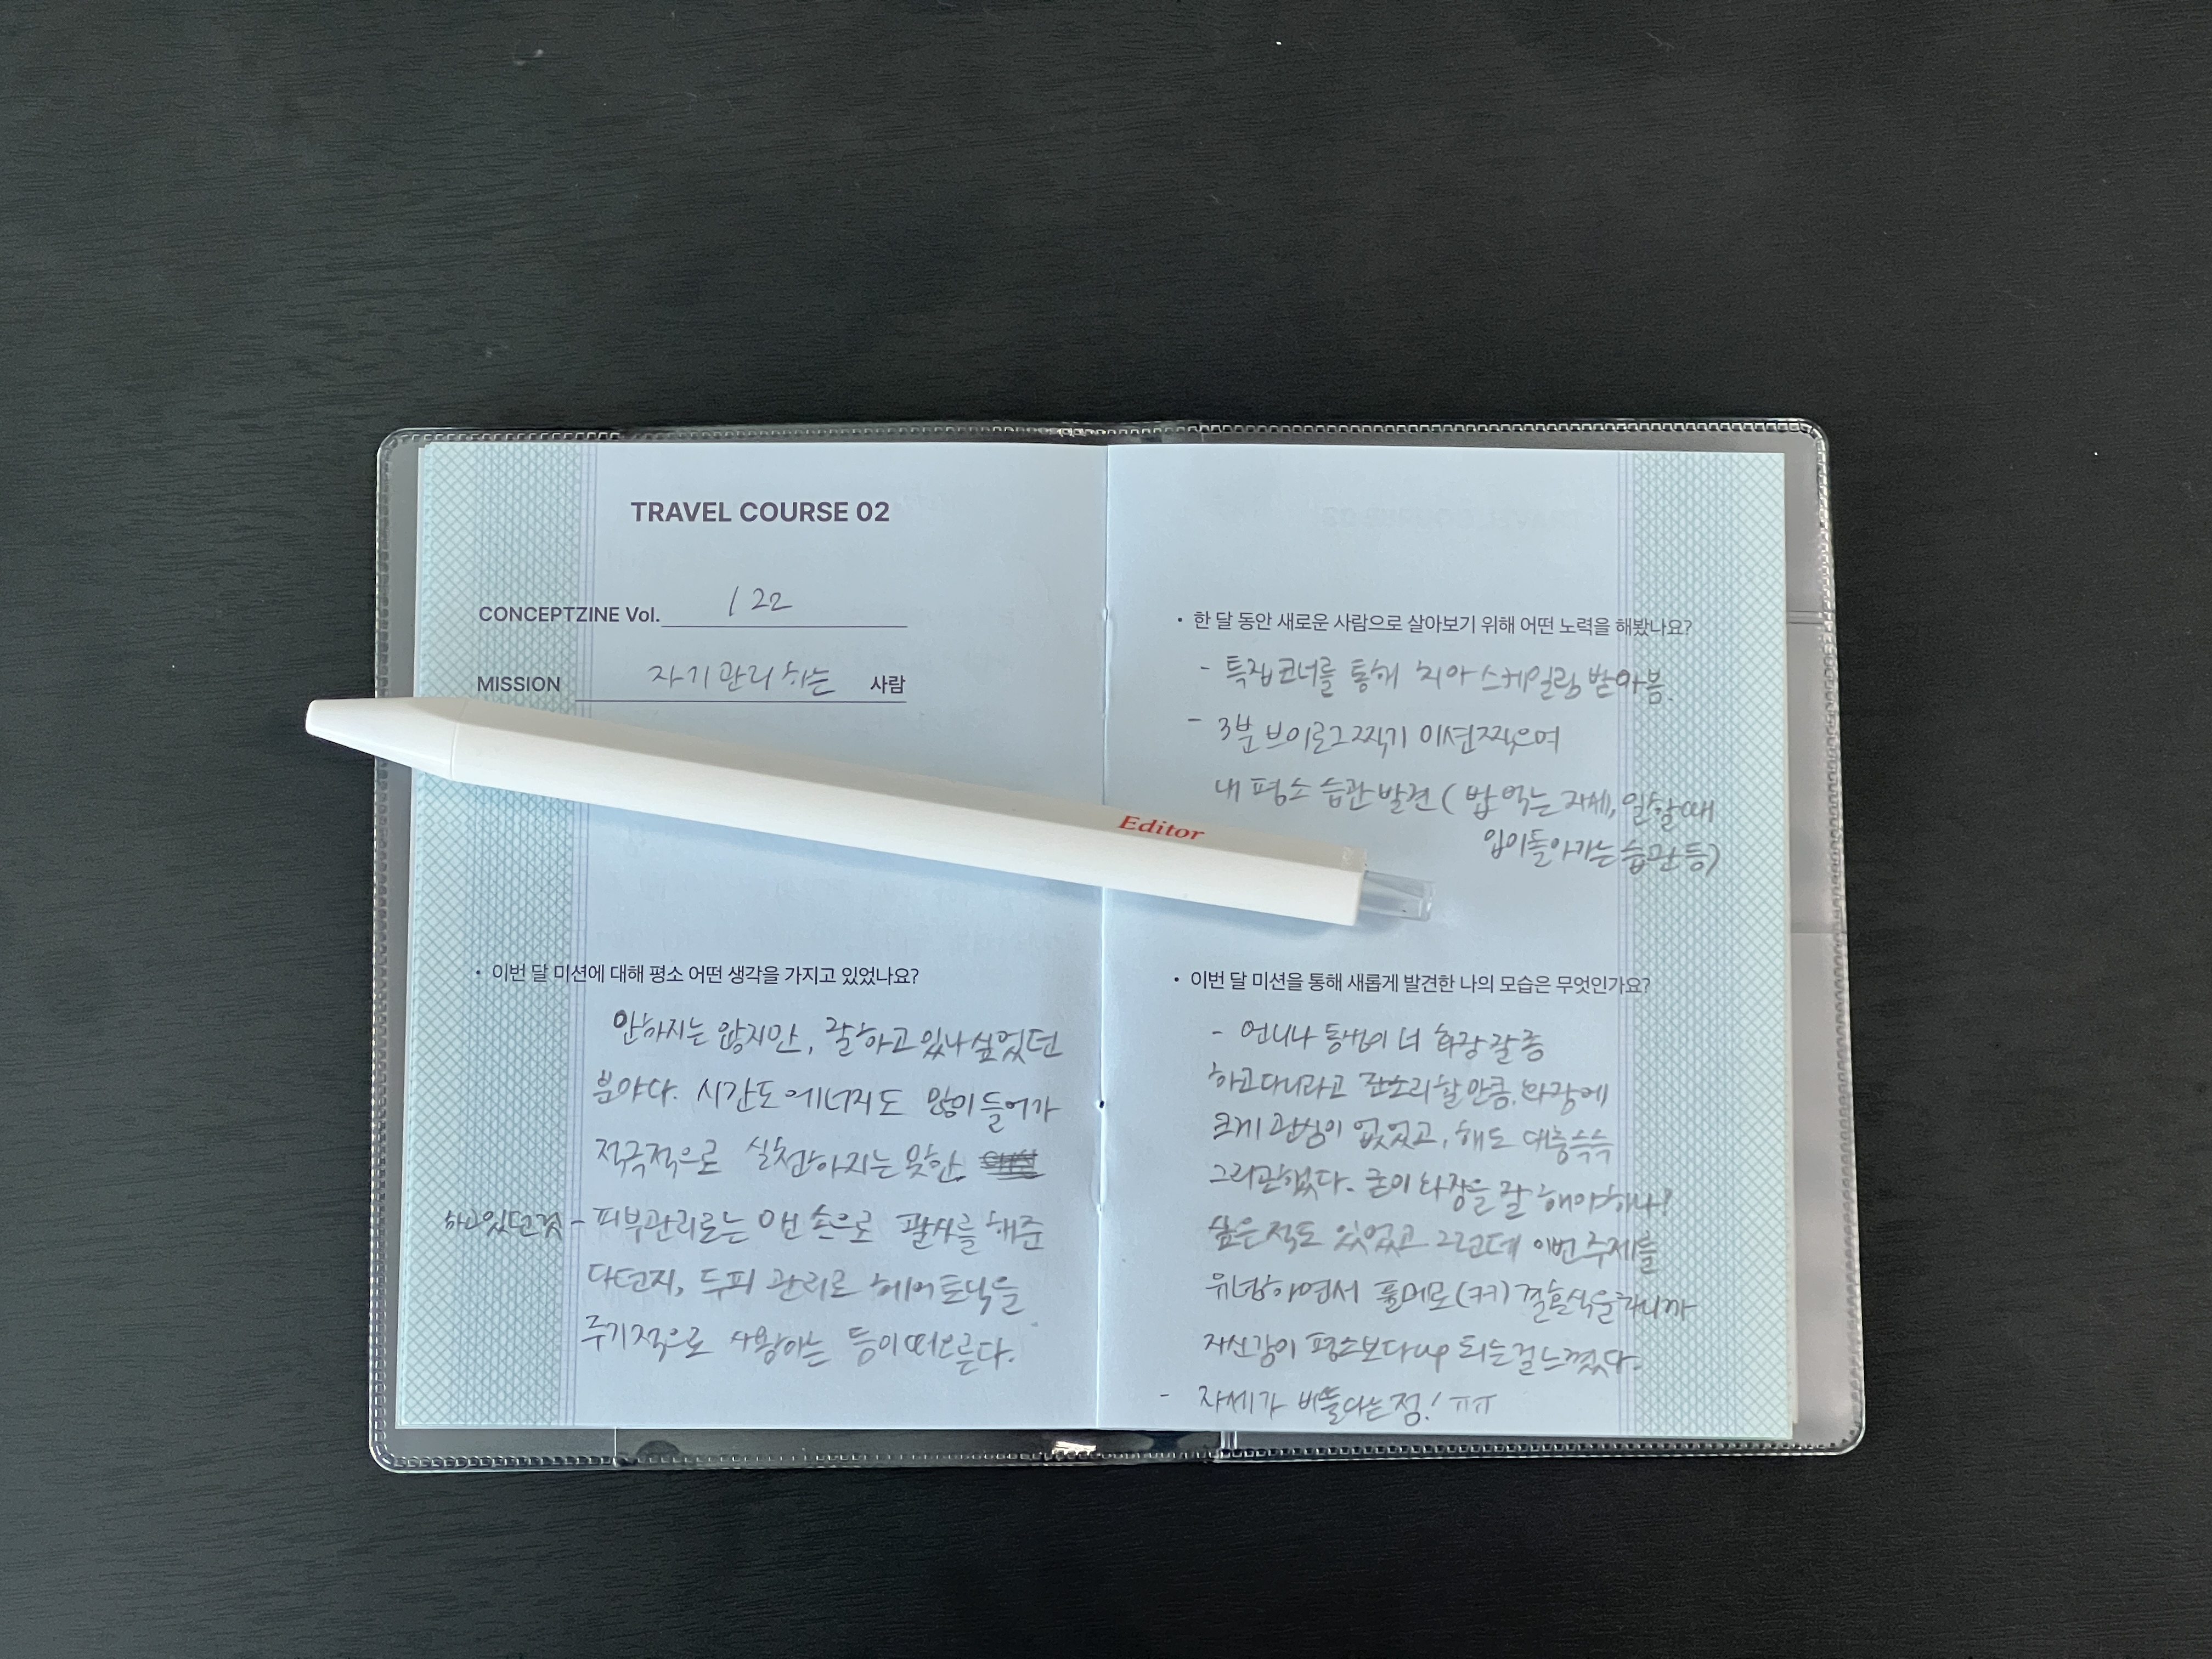 TRAVEL COURSE 02
CONCEPTZINE Vol. 122
MISSION 자기관리 하는 사람
Editor
• 이번 달 미션에 대해 평소 어떤 생각을 가지고 있었나요?
안하지는 않지만, 잘하고 있나 싶었던
분야다. 시간도 에너지도 많이 들어가
적극적으로 실천하지는 못한.
하고있던것 - 피부관리로는 맨 손으로 괄사를 해준
다던지, 두피 관리로 헤어토닉을
주기적으로 사용하는 등이 떠오른다.
• 한 달 동안 새로운 사람으로 살아보기 위해 어떤 노력을 해봤나요?
- 특집코너를 통해 치아 스케일링 받아봄.
- 3분 브이로그찍기 미션찍으며
내 평소 습관 발견 ( 밥 먹는 자세, 일할때
입이돌아가는 습관 등)
• 이번 달 미션을 통해 새롭게 발견한 나의 모습은 무엇인가요?
- 언니나 동생이 너 화장 잘 좀
하고다니라고 잔소리할 만큼, 화장에
크게 관심이 없었고, 해도 대충슥슥
그리곤했다. 굳이 화장을 잘 해야하나?
싶은적도 있었고 그런데 이번 주제를
유념하면서 풀메로(ㅋㅋ) 결혼식을가니까
자신감이 평소보다 up 되는걸 느꼈다.
- 자세가 비뚤다는점! ㅠㅠ